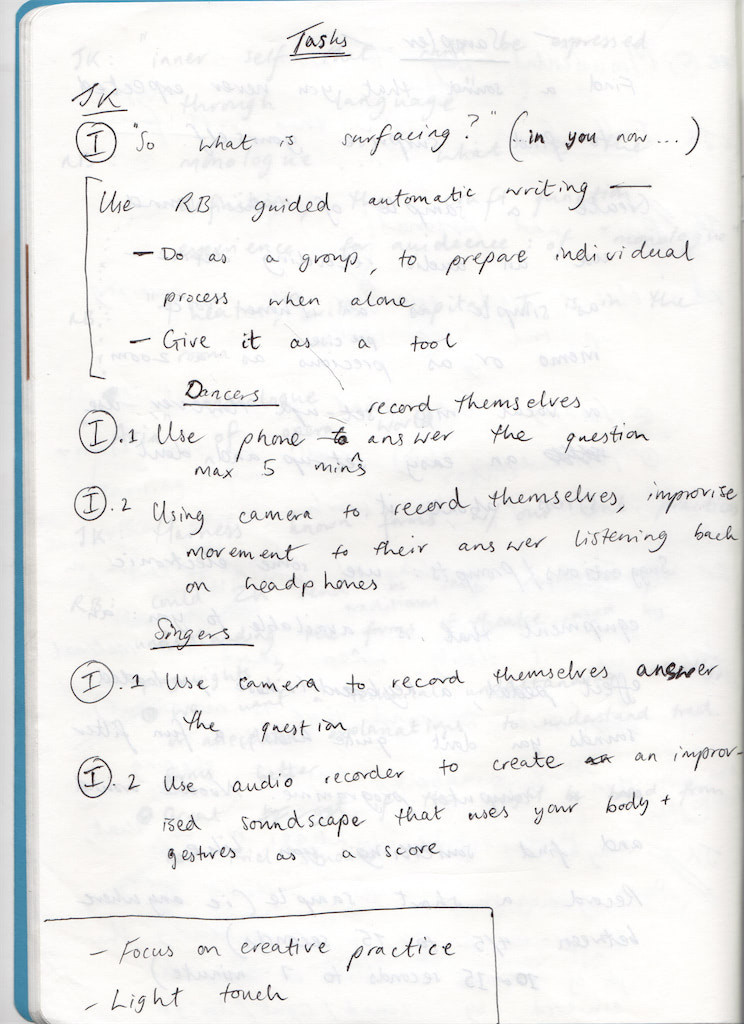 Tasks
JK
I "So what is surfacing?" (...in you now...)
Use RB guided automatic writing —
- Do as a group, to prepare individual
process when alone
- Give it as a tool
Dancers
record themselves
I.1 Use phone to ^ answer the question
max 5 mins
I.2 Using camera to record themselves, improvise
movement to their answer listening back
on headphones
Singers
I.1 Use camera to record themselves answer
the question
I.2 Use audio recorder to create an improv-
ised soundscape that uses your body +
gestures as a score
- Focus on creative practice
- Light touch